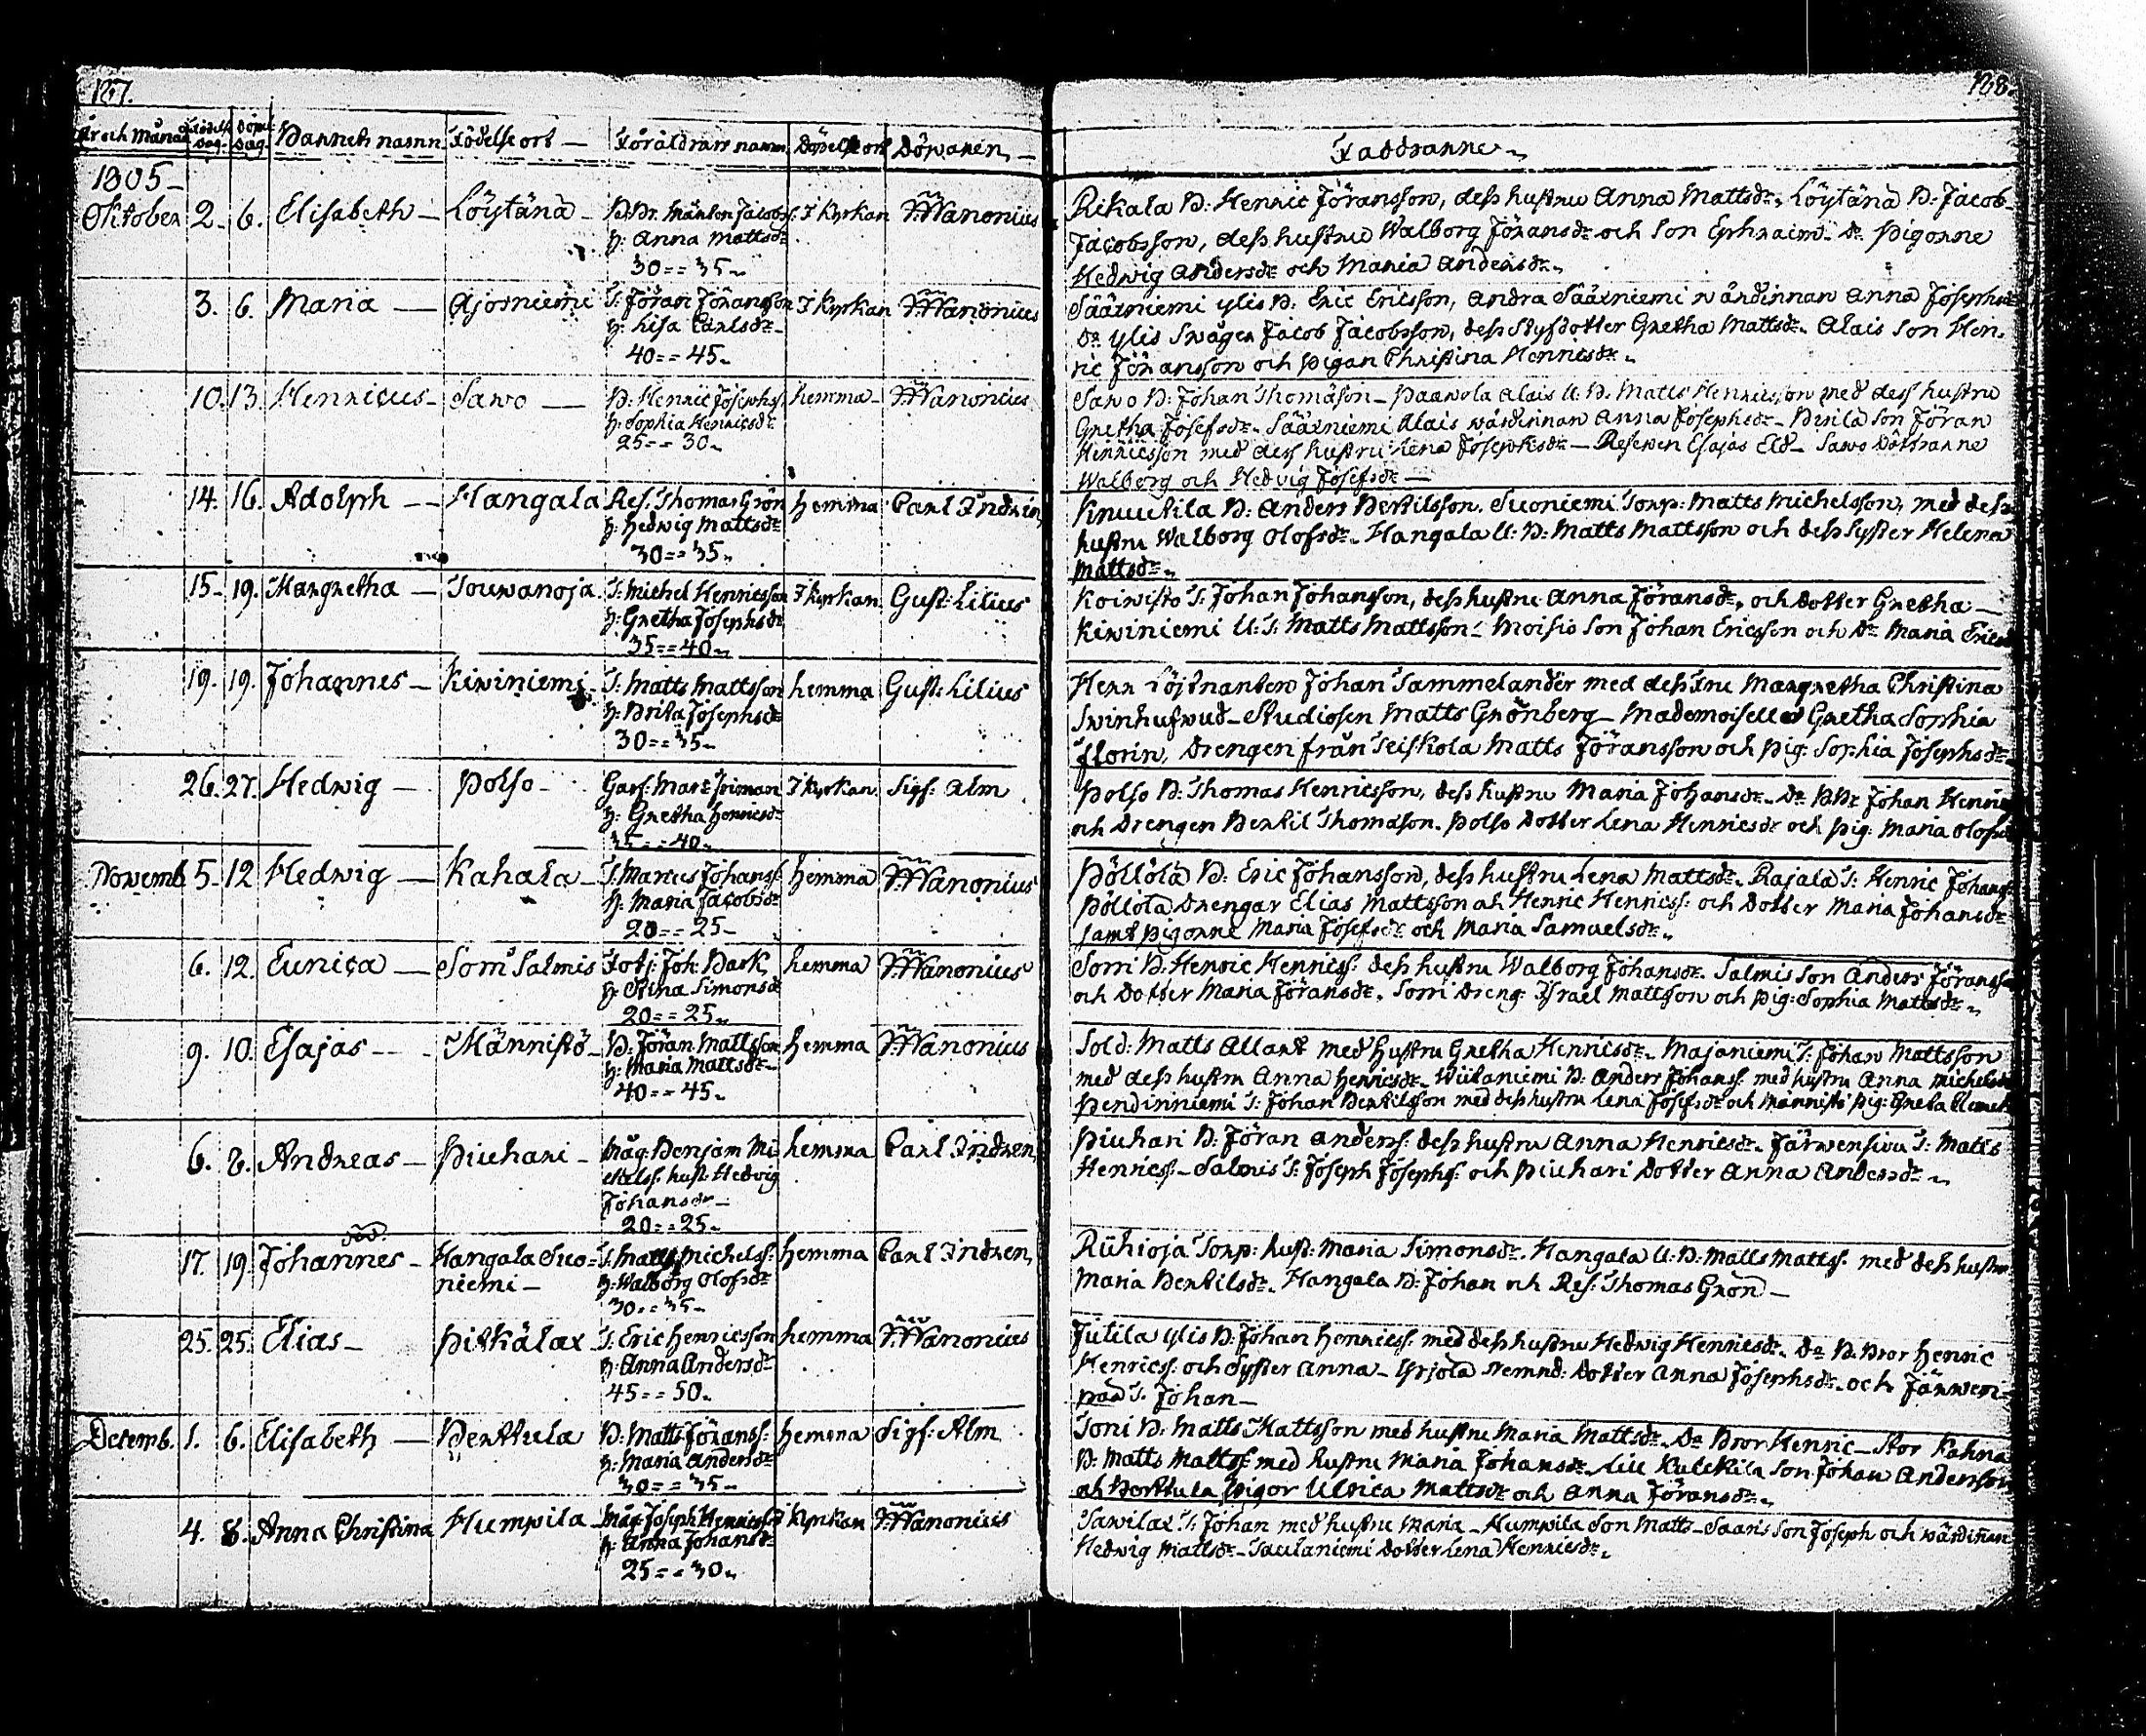 127.
År och Månad Födelse dag. Döpelse dag. Barnets namn Födelse ort — Föräldrars namn Döpelse ort Döparen. —
1805 —
Oktober 2. 6. Elisabeth — Löytänä — B:Br. Mårten Jacobs: I Kyrkan Wanonius
H: Anna Mattsdr
30 = = 35.
3. 6. Maria — Ajosniemi T: Jöran Jöransson I Kyrkan Wanonius
H: Lisa Carlsdr —
40 = = 45.
10. 13. Henricus — Sawo — B: Henric Josephs: hemma — Wanonius
H: Sophia Henricsdr
25 = = 30.
14. 16. Adolph — Hangala Res: Thomas Grön hemma Carl Indrén
H: Hedwig Mattsdr
30 = = 35.
15 — 19. Margretha — Jouwanoja. T: Michel Henricsson I Kyrkan. Gust: Lilius
H: Gretha Josephsdr
35 = = 40.
19. 19. Johannes — Kiwiniemi. T: Matts Mattsson hemma Gust: Lilius
H: Brita Josephsdr
30 = = 35.
26. 27. Hedwig — Polso — I Kyrkan Sigf: Alm
H: Gretha Henricsdr
35 = = 40.
Novemb. 5 — 12 Hedwig — Kahala — T: Marcus Johanss: hemma Wanonius
H: Maria Jacobsdr
20 = = 25 —
6. 12. Eunica — Sorri Salmis Joh: Bask hemma Wanonius
H: Stina Simonsdr
20 = = 25.
9. 10. Esajas — Männistö — B: Jöran Mattsson hemma Wanonius
H: Maria Mattsdr —
40 = = 45.
6. 8. Andreas — Piuhari — Måg: Benjam Mi- hemma Carl Indrén.
chelss: hust: Hedvig
Johansdr —
20 = = 25.
död.
17. 19. Johannes — Hangala Suo= T: Matts Michelss: hemma Carl Indrén.
niemi — H: Walborg Olofsdr
30 = = 35 —
25. 25. Elias — Pitkälax T: Eric Henricsson hemma Wanonius
H: Anna Andersdr
45 = = 50.
Decemb. 1. 6. Elisabeth — Perttula B: Matts Jöranss: hemma Sigf: Alm
H: Maria Andersdr
30 = = 35 —
4. 8. Anna Christina Humpila — Måg: Joseph Henricss: I Kyrkan Wanonius
H: Anna Johansdr
25 = = 30.
128.
Faddrarne.
Rikala B: Henric Jöransson, dess hustru Anna Mattsdr. Löytänä B: Jacob
Jacobsson, dess hustru Walborg Jöransdr och Son Ephraim. Do Pigorne
Hedwig Andersdr och Maria Andersdr.
Säärniemi ylis B: Eric Ericsson, andra Säärniemi wärdinnan Anna Josephsdr
Do ylis Swåger Jacob Jacobsson, dess Styfdotter Gretha Mattsdr. Alais Son Hen-
ric Jöransson och Pigan Christina Henricsdr.
Sawo B: Johan Thomasson — Paawola Alais U: B: Matts Henricsson med dess hustru
Gretha Josefsdr. Säärniemi Alais wärdinnan Anna Josephsdr — Pirilä Son Jöran
Henricsson med dess hustru Lena Josephsdr — Reserven Esajas Eld — Sawo Döttrarne
Walborg och Hedvig Josefsdr —
Knuutila B: Anders Bertilsson. Suoniemi Torp: Matts Michelsson, med dess
hustru Walborg Olofsdr. Hangala U: B: Matts Mattsson och dess Syster Helena
Mattsdr.
Koiwisto T: Johan Johansson, dess hustru Anna Jöransdr, och Dotter Gretha —
Kiwiniemi U: T: Matts Mattsson — Moisio Son Johan Ericsson och Do Maria Ericsdr
Herr Löjtnanten Johan Tammelander med dess Fru Margretha Christina
Swinhufwud — Studiosen Matts Grönberg — Mademoiselle Gretha Sophia
Florin, Drengen från Seiskola Matts Jöransson och Pig: Sophia Josephsdr.
Polso B: Thomas Henricsson, dess hustru Maria Johansdr. Do B:Br Johan Henrics
och Drengen Bertil Thomasson. Polso Dotter Lena Henricsdr och Pig: Maria Olofsdr
Pöllölä B: Eric Johansson, dess hustru Lena Mattsdr. Rajala T: Henric Johanss:
Pöllölä Drengar Elias Mattsson ach Henric Henricss: och Dotter Maria Johansdr
samt Pigorne Maria Josefsdr och Maria Samuelsdr.
Sorri B: Henric Henricss: dess hustru Walborg Johansdr. Salmis Son Anders Jöransson
och Dotter Maria Jöransdr. Sorri Dreng: Israel Mattsson och Pig: Sophia Mattsdr.
Sold: Matts Allart med hustru Gretha Henricsdr. Majaniemi T: Johan Mattsson
med dess hustru Anna Henricsdr. Wiitaniemi B: Anders Johanss: med hustru Anna Michelsdr
Pendinniemi T: Johan Bertilsson med dess hustru Lena Josefsdr och Männistö Pig: Greta
Piuhari B: Jöran Anderss: dess hustru Anna Henricsdr. Järwensiwu T: Matts
Henricss — Salmis T: Joseph Josephss: och Piuhari Dotter Anna Andersdr.
Riihioja Torp: hust: Maria Simonsdr. Hangala U: B: Matts Mattss: med dess hustru
Maria Bertilsdr. Hangala B: Johan och Res: Thomas Grön —
Jutila ylis B: Johan Henricss: med dess hustru Hedwig Henricsdr. Do B: Bror Henric
Henricss: och Syster Anna — Yrjölä Nemnd: Dotter Anna Josephsdr. och Järwen-
pää T: Johan —
Toni B: Matts Mattsson med hustru Maria Mattsdr. Do Bror Henric — Stor Kahra
B: Matts Mattss: med hustru Maria Johansdr. Lill Kulckila Son Johan Andersson
ach Perttula Pigor Ulrica Mattsdr och Anna Jöransdr.
Sawilax T: Johan med hustru Maria — Humpila Son Matts — Saaris Son Joseph och wärdinan
Hedwig Mattsdr — Saulaniemi Dotter Lena Henricsdr.